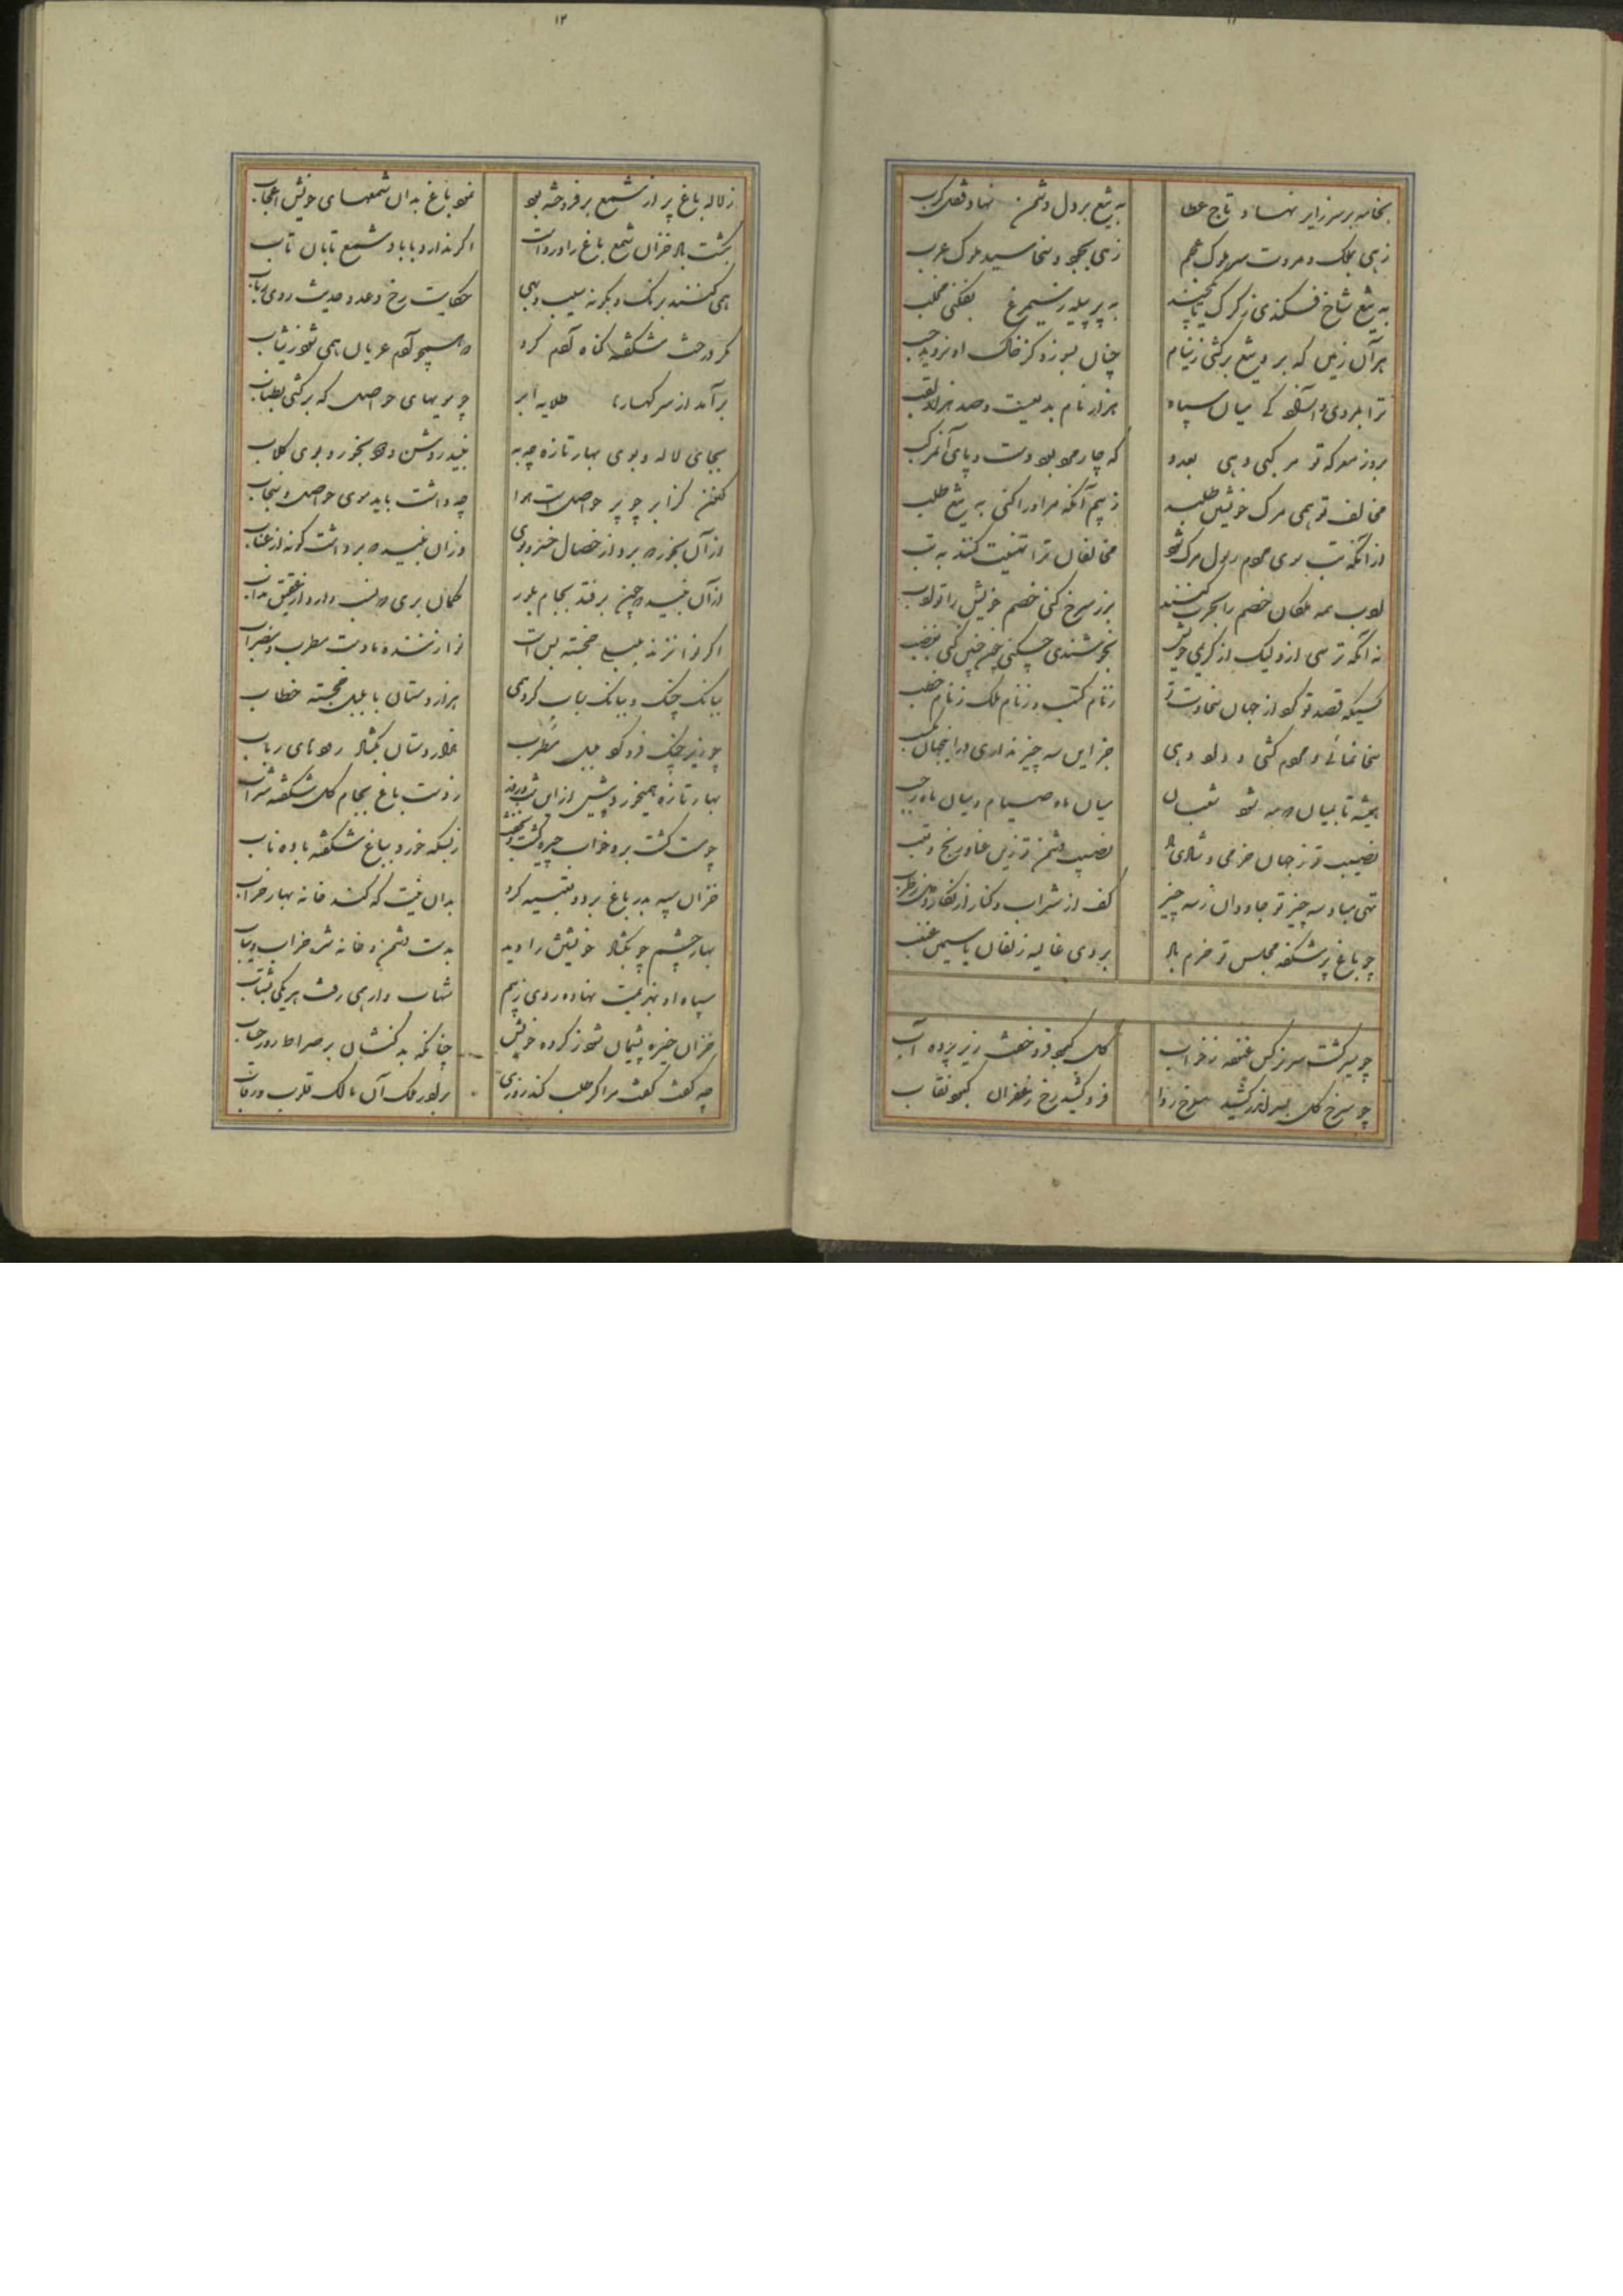 ۱۱
بخامه بر سر زایر نهاد تاج عطا
به تیغ بر دل دشمن نهاد ثقل کرب
زهی بملک و مروت سر ملوک عجم
زهی بجود و سخا سید ملوک عرب
به تیغ شاخ فکندی ز کرک
به پر سیمرغ بفکنی مخلب
هر آن زمین که بر و تیغ برکشی ز نیام
چنان بسوزد کز خاک او نروید حب
میان سپاه
هزار نام بدیعست و صد هزار لقب
بروز معرکه تو مرکبی دهی بعدو
که چار میخ بود دست و پای آن مرکب
مخالف تو همی مرک خویشتن طلبد
ز بیم آنکه مر او را کنی به تیغ طلب
از آنکه تب بری مردم رسول مرک بود
مخالفان ترا تهنیت کنند به تب
لعب همه ملکان خصم را بحرب کنند
بزر سرخ کنی خصم خویش را تو لعب
نه آنکه ترسی ازو لیک از کریمی خویش
بخوشندی
کسیکه قصد تو کرد از جهان سخاوت تو
ز نام کتب و ز نام ملک ز نام خطب
سخا نمائی و مردم کشی و داد دهی
جز این سه چیز نداری در اینجهان مکسب
همیشه تا بمیان دو مه بود شعبان
میان ماه صیام و میان ماه رجب
نصیب تو ز جهان خرمی و شادی باد
نصیب دشمن تو زین عنا و رنج و تعب
تهی مباد سه چیز تو جاودان ز سه چیز
کف از شراب و کنار از نکار و دل ز طرب
چو باغ پر شکفه مجلس تو خرم باد
بروی غالیه زلفان یاسمین غبغب
چو سیر کشت سر نرکس غنوده ز خواب
کل کبود فرو خفت زیر پرده آب
چو سرخ کل بسر اندر کشید سرخ ردا
فرو کشید رخ زعفران کبود نقاب
۱۲
ز لاله باغ پر از شمع بر فروخته بود
نمود باغ بدان شمعهای خویش اعجاب
بکشت باد خزان شمع باغ را و رواست
اکر ندارد با باد شمع تابان تاب
همی کنند برنک و بکونه سیب و بهی
حکایت رخ دعد و حدیث روی رباب
مکر درخت شکفته کناه آدم کرد
که همچو آدم عریان همی شود ز ثیاب
برآمد از سر کهسارها طلایه ابر
چو پرهای حواصل که برکشی بطناب
بجای لاله و بوی بهار تازه چه به
نبید روشن و دود بخور و بوی کلاب
کنون کز ابر چو پر حواصلست هوا
چه داشت باید موی حواصل و سنجاب
از آن بخور که برد از خصال خسرو بوی
وزان نبید که برداشت کونه از عناب
از آن نبید که چون برفتد بجام بلور
کمان بری که لب دارد از عقیق مذاب
اکر نوا نزند بلبل خجسته بس است
نوا زننده ما دست مطرب و مضراب
ببانک چنک و ببانک رباب کرد همی
هزار دستان با بلبل خجسته خطاب
چو زیر چنک فرو کوفت بلبل مطرب
هزار دستان بکشاد رودهای رباب
بهار تازه همیخورد پیش ازین شب و روز
ز دست باغ بجام کل شکفته شراب
چو مست کشت برو خواب چیره کشت و بخفت
ز بسکه خورد بباغ شکفته باده ناب
خزان سپه بدر باغ برد و تعبیه کرد
بدان نیت که کند خانه بهار خراب
بهار چشم چو بکشاد خویشتن را دید
بدست دشمن و خانه شده خراب و یباب
سپاه او بهزیمت نهاده روی ز بیم
شهاب وار همی رفت هر یکی بشتاب
خزان خیره پشیمان شود ز کرده خویش
چنانکه بد کنشان بر صراط روز حساب
چه کفت کفت مرا کر طلب کند روزی